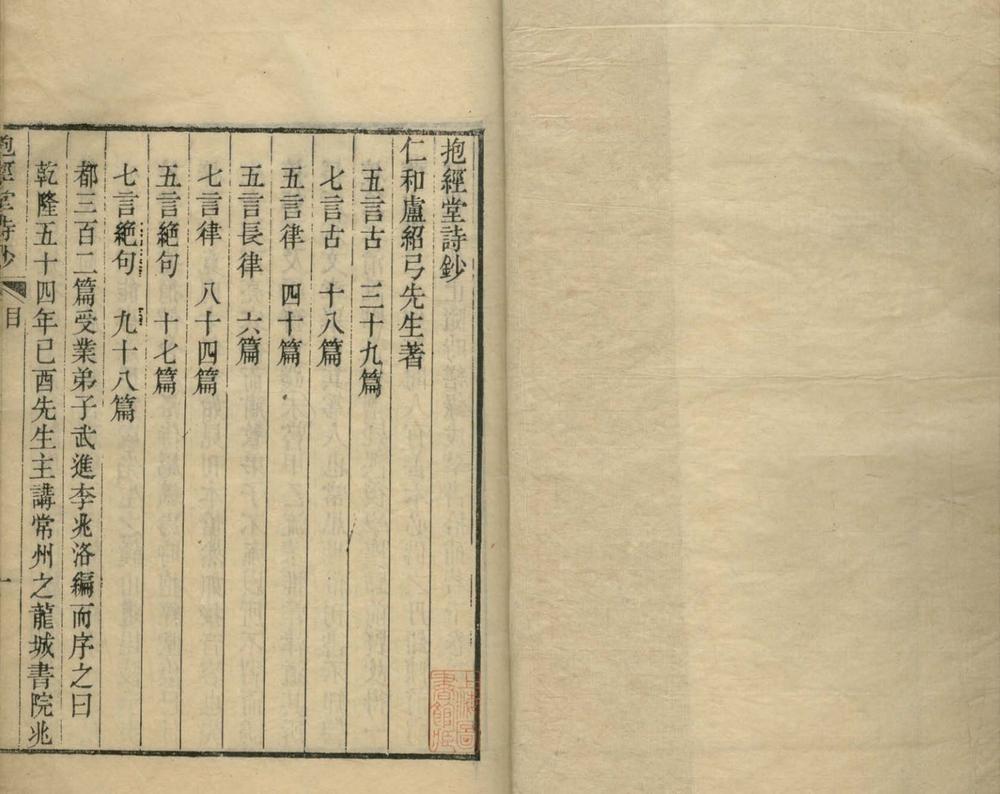 抱經堂詩鈔
仁和盧紹弓先生著
五言古 三十九篇
七言古 十八篇
五言律 四十篇
五言長律 六篇
七言律 八十四篇
五言絶句 十七篇
七言絶句 九十八篇
都三百二篇受業弟子武進李兆洛編而序之曰
乾隆五十四年己酉先生主講常州之龍城書院兆
抱經堂詩鈔 目 一
上海圖書館藏